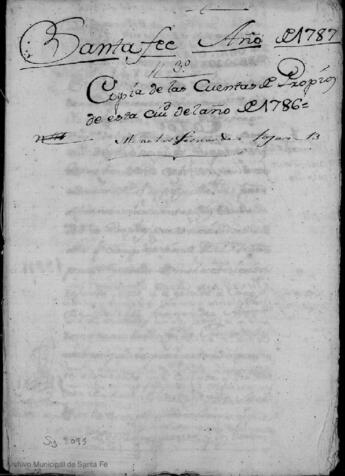 Santa fee Año de 1787
N 3.º
Copia de las Cuentas de Propios
de esta ciu.d del año de 1786=
Sg. 2095
Archivo Municipal de Santa Fe